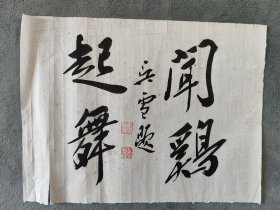 聞鷄
起舞
兵雪題